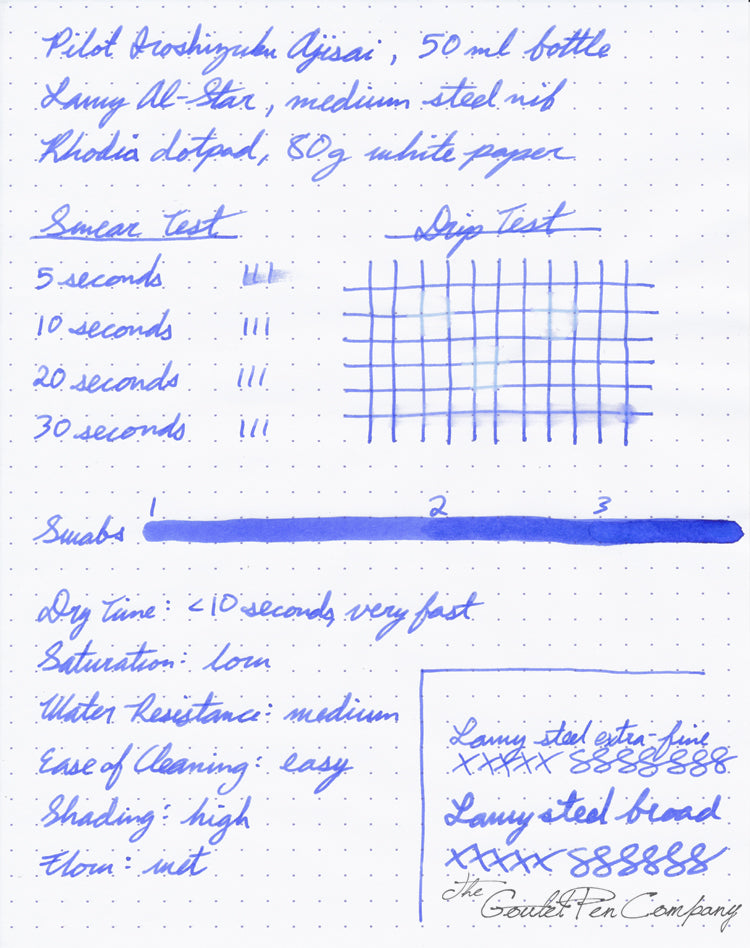 Pilot Iroshizuku Ajisai, 50 ml bottle
Lamy Al-Star, medium steel nib
Rhodia dotpad, 80g white paper
Smear Test
Drip Test
5 seconds
10 seconds
20 seconds
30 seconds
1 2 3
Swabs
Dry Time: <10 seconds, very fast
Saturation: low
Water Resistance: medium
Ease of Cleaning: easy
Shading: high
Flow: wet
Lamy steel extra-fine
xxxxx 8888888
Lamy steel broad
xxxxx 888888
The Goulet Pen Company